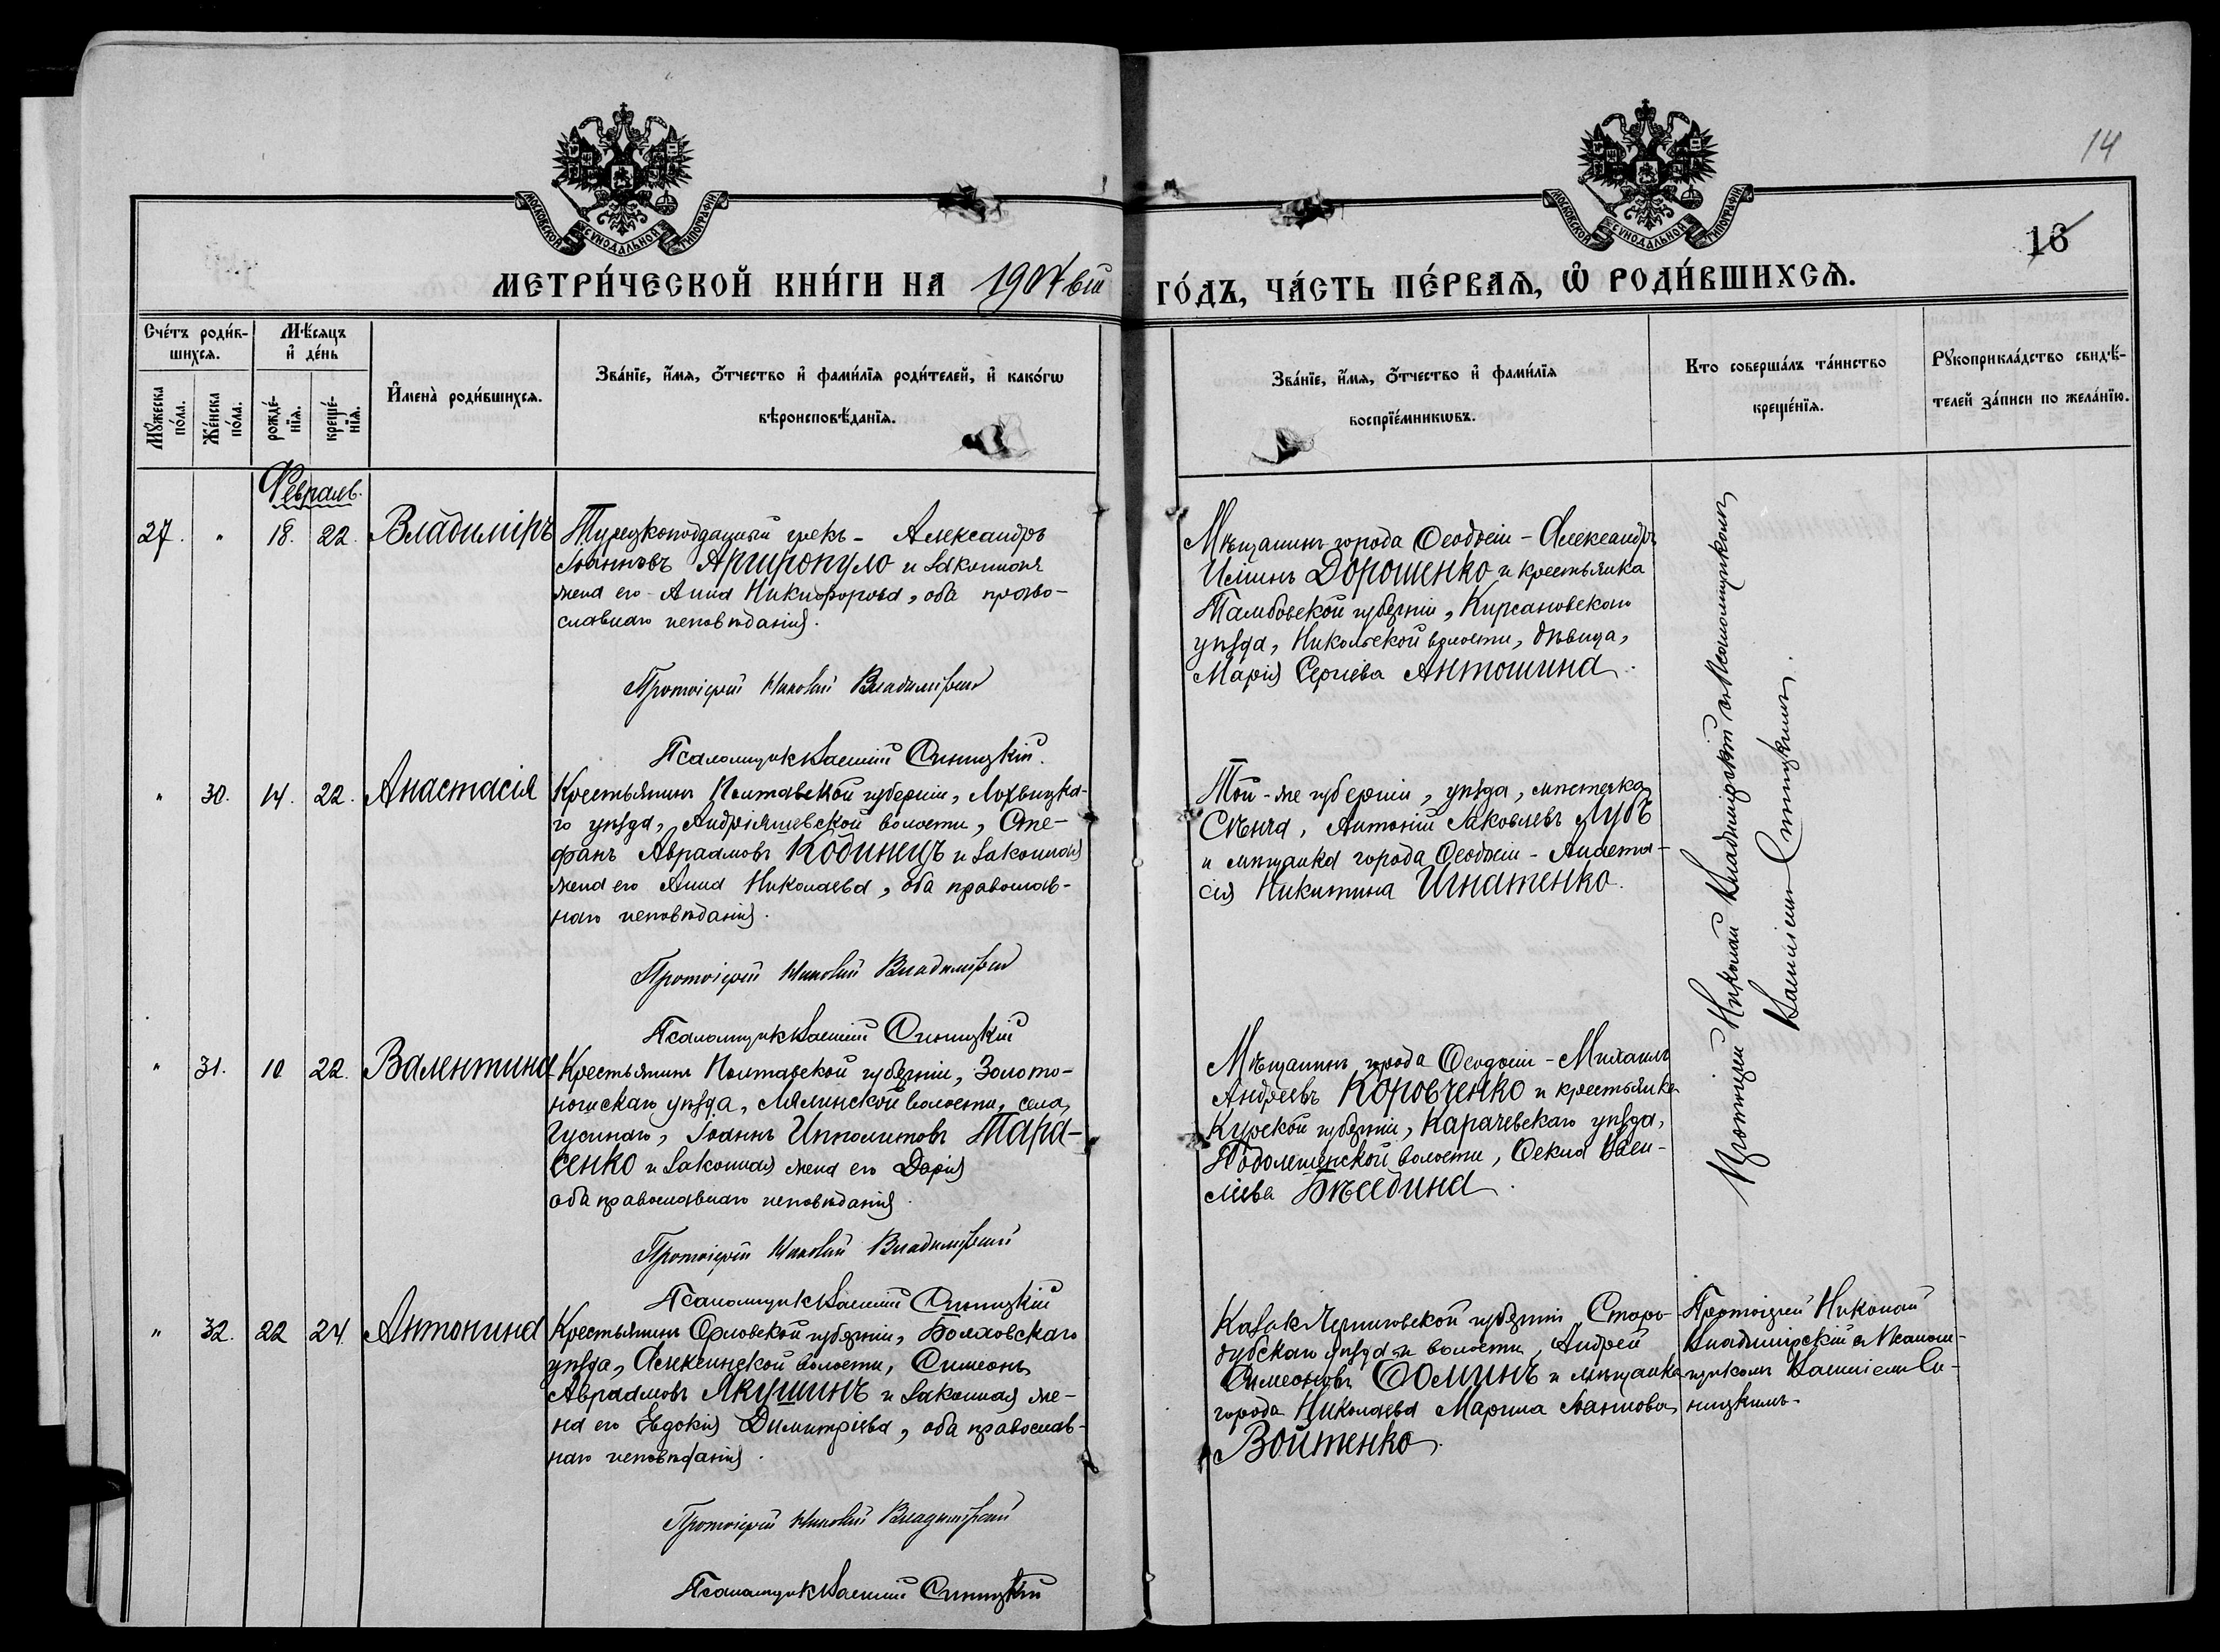 14
16
МОСКОВСКОЙ СУНОДАЛЬНОЙ ТИПОГРАФІИ
МОСКОВСКОЙ СУНОДАЛЬНОЙ ТИПОГРАФІИ
МЕТРИ́ЧЕСКОЙ КНИ́ГИ НА 1907 вы́й ГО́ДЪ, ЧА́СТЬ ПЕ́РВАЯ, Ѽ РОДИ́ВШИХСЯ.
Сче́тъ роди́в-
шихся.
Мꙋ́жеска по́ла.
Же́нска по́ла.
Мѣ́сяцъ
и҆ де́нь
рожде́-
нїя.
креще́-
нїя.
И҆мена̀ роди́вшихся.
Зва́нїе, и҆́мя, ѻ҆́тчество и҆ фами́лїя роди́телей, и҆ како́гѡ
вѣроисповѣ́данїя.
Зва́нїе, и҆́мя, ѻ҆́тчество и҆ фами́лїя
воспрїе́мникѡвъ.
Кто соверша́лъ та́инство
креще́нїя.
Рꙋкоприкла́дство свидѣ́-
телей за́писи по жела́нїю.
Февраль.
27. " 18. 22. Владиміръ
Турецкоподданный грекъ - Александръ
Іоанновъ Аргиропуло и законная
жена его - Анна Никифорова, оба право-
славнаго исповѣданія.
Протоіерей Николай Владимірскій
Псаломщикъ Василій Синицкій.
Мѣщанинъ города Ѳеодосіи - Александръ
Ильинъ Дорошенко и крестьянка
Тамбовской губерніи, Кирсановскаго
уѣзда, Никольской волости, дѣвица,
Марія Сергіева Антошина.
Протоіерей Николай Владимірскій съ Псаломщикомъ
Василіемъ Синицкимъ.
" 30. 14. 22. Анастасія
Крестьянинъ Полтавской губерніи, Лохвицка-
го уѣзда, Андріяшевской волости, Сте-
фанъ Авраамовъ Кодинецъ и законная
жена его Анна Николаева, оба православ-
наго исповѣданія.
Протоіерей Николай Владимірскій
Псаломщикъ Василій Синицкій
Той-же губерніи, уѣзда, мѣстечка
Сѣнча, Антоній Іаковлевъ Лубъ
и мѣщанка города Ѳеодосіи - Анаста-
сія Никитина Игнатенко.
" 31. 10 22. Валентина
Крестьянинъ Полтавской губерніи, Золото-
ношскаго уѣзда, Лялинской волости, села
Гусинаго, Іоаннъ Ипполитовъ Тара-
сенко и законная жена его Дарія
оба православнаго исповѣданія.
Протоіерей Николай Владимірскій
Псаломщикъ Василій Синицкій
Мѣщанинъ города Ѳеодосіи - Михаилъ
Андреевъ Коровченко и крестьянка
Курской губерніи, Карачевскаго уѣзда,
волости, Ѳекла Васи-
ліева Бѣседина.
" 32. 22 24. Антонина
Крестьянинъ Орловской губерніи, Болховскаго
уѣзда, Алексинской волости, Симеонъ
Авраамовъ Якушинъ и законная же-
на его Евдокія Димитріева, оба православ-
наго исповѣданія.
Протоіерей Николай Владимірскій
Псаломщикъ Василій Синицкій
Казакъ Черниговской губерніи Старо-
дубскаго уѣзда и волости, Андрей
Симеоновъ Ѳоминъ и мѣщанка
города Николаева Марина Іоаннова
Войтенко.
Протоіерей Николай
Владимірскій съ Псалом-
щикомъ Василіемъ Си-
ницкимъ.